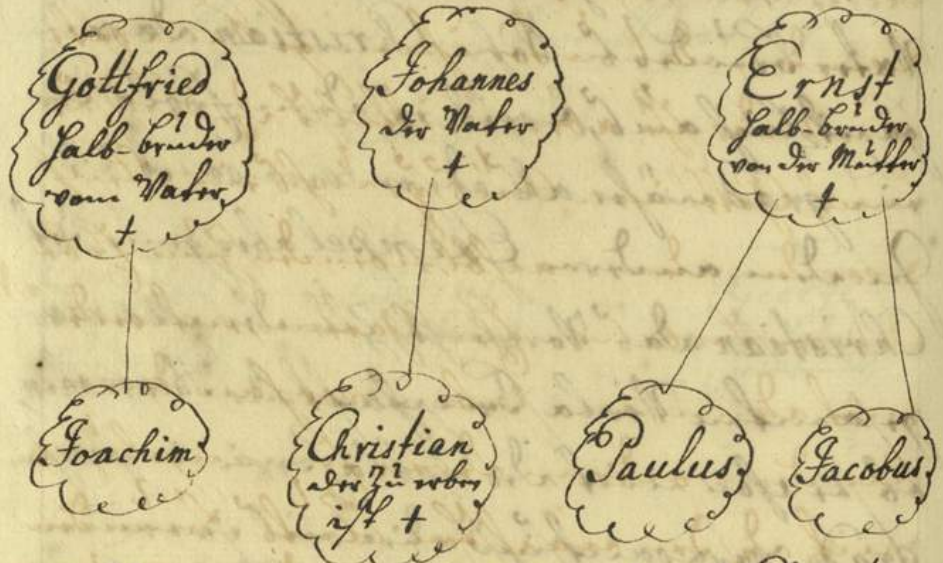 Gottfried
halb-bruder
vom Vater
†
Johannes
der Vater
†
Ernst
halb-bruder
von der Mutter
†
Joachim
Christian
der zu erben
ist †
Paulus
Jacobus